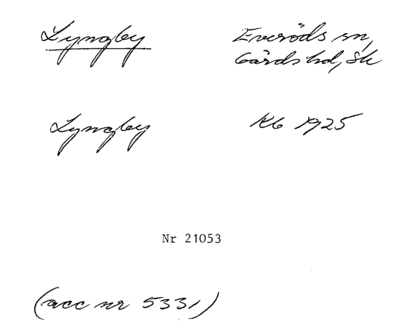 Lyngby
Everöds sn,
Gärds hd, Sk
Lyngby
Kb 1925
Nr 21053
(acc nr 5331)